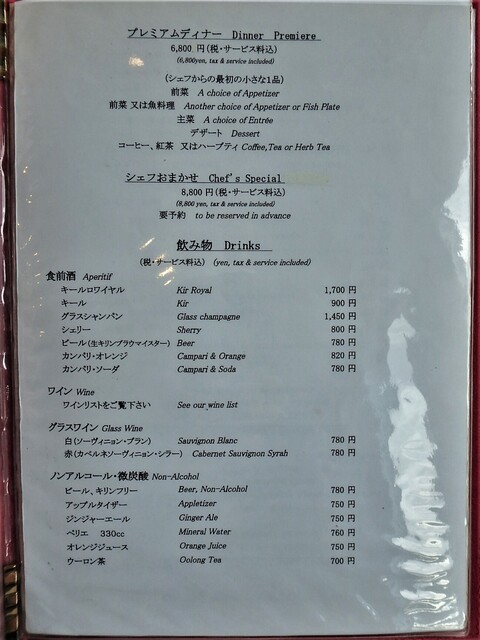 プレミアムディナー Dinner Premiere
6,800 円(税・サービス料込)
(6,800yen, tax & service included)
(シェフからの最初の小さな1品)
前菜 A choice of Appetizer
前菜 又は魚料理 Another choice of Appetizer or Fish Plate
主菜 A choice of Entrée
デザート Dessert
コーヒー、紅茶 又はハーブティ Coffee,Tea or Herb Tea
シェフおまかせ Chef's Special
8,800 円(税・サービス料込)
(8,800 yen, tax & service included)
要予約 to be reserved in advance
飲み物 Drinks
(税・サービス料込) (yen, tax & service included)
食前酒 Aperitif
キールロワイヤル Kir Royal 1,700 円
キール Kir 900 円
グラスシャンパン Glass champagne 1,450 円
シェリー Sherry 800 円
ビール(生キリンブラウマイスター) Beer 780 円
カンパリ・オレンジ Campari & Orange 820 円
カンパリ・ソーダ Campari & Soda 780 円
ワイン Wine
ワインリストをご覧下さい See our wine list
グラスワイン Glass Wine
白(ソーヴィニョン・ブラン) Sauvignon Blanc 780 円
赤(カベルネソーヴィニョン・シラー) Cabernet Sauvignon Syrah 780 円
ノンアルコール・微炭酸 Non-Alcohol
ビール、キリンフリー Beer, Non-Alcohol 780 円
アップルタイザー Appletizer 750 円
ジンジャーエール Ginger Ale 750 円
ペリエ 330cc Mineral Water 760 円
オレンジジュース Orange Juice 750 円
ウーロン茶 Oolong Tea 700 円